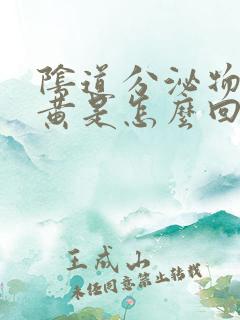 陰道分泌物
黄是怎麼回
王成山
未经同意禁止转载